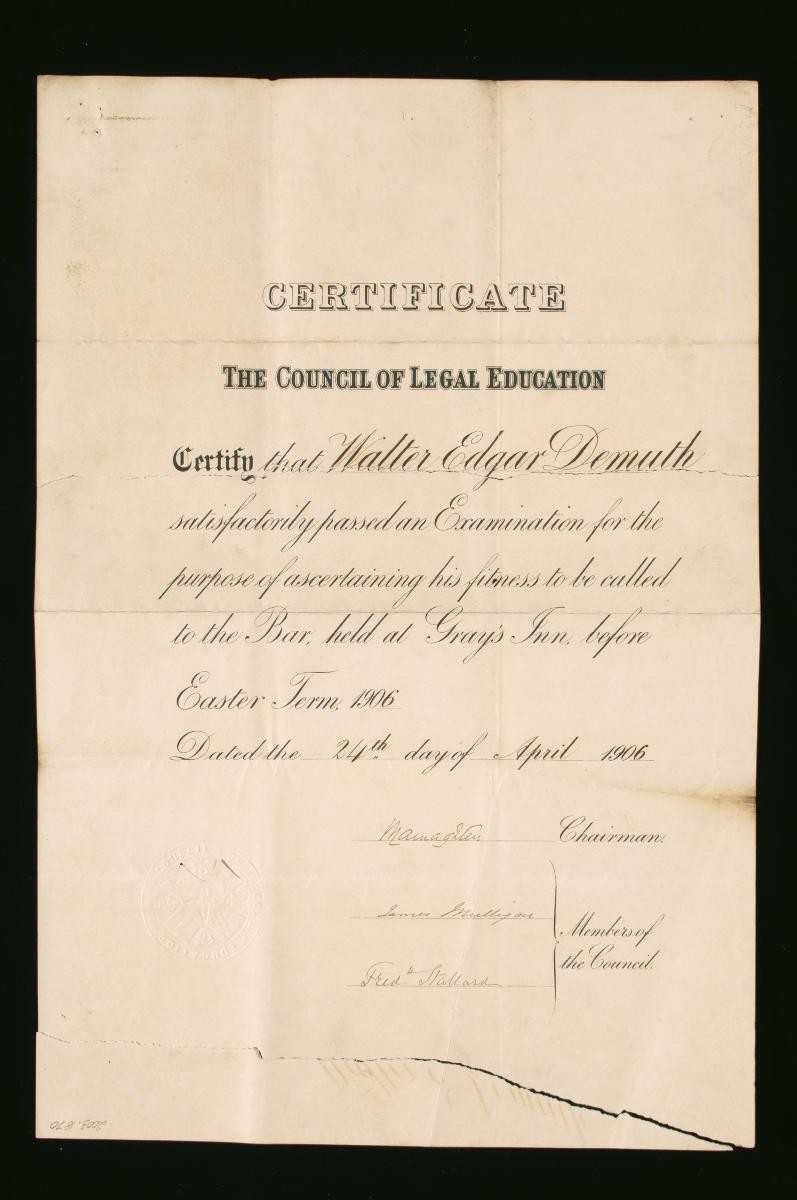 CERTIFICATE
THE COUNCIL OF LEGAL EDUCATION
Certify that Walter Edgar Demuth
satisfactorily passed an Examination for the
purpose of ascertaining his fitness to be called
to the Bar, held at Gray's Inn, before
Easter Term, 1906
Dated the 24th day of April 1906
Macnaghten Chairman.
James Mulligan
Members of
the Council.
Fredk. Stallard